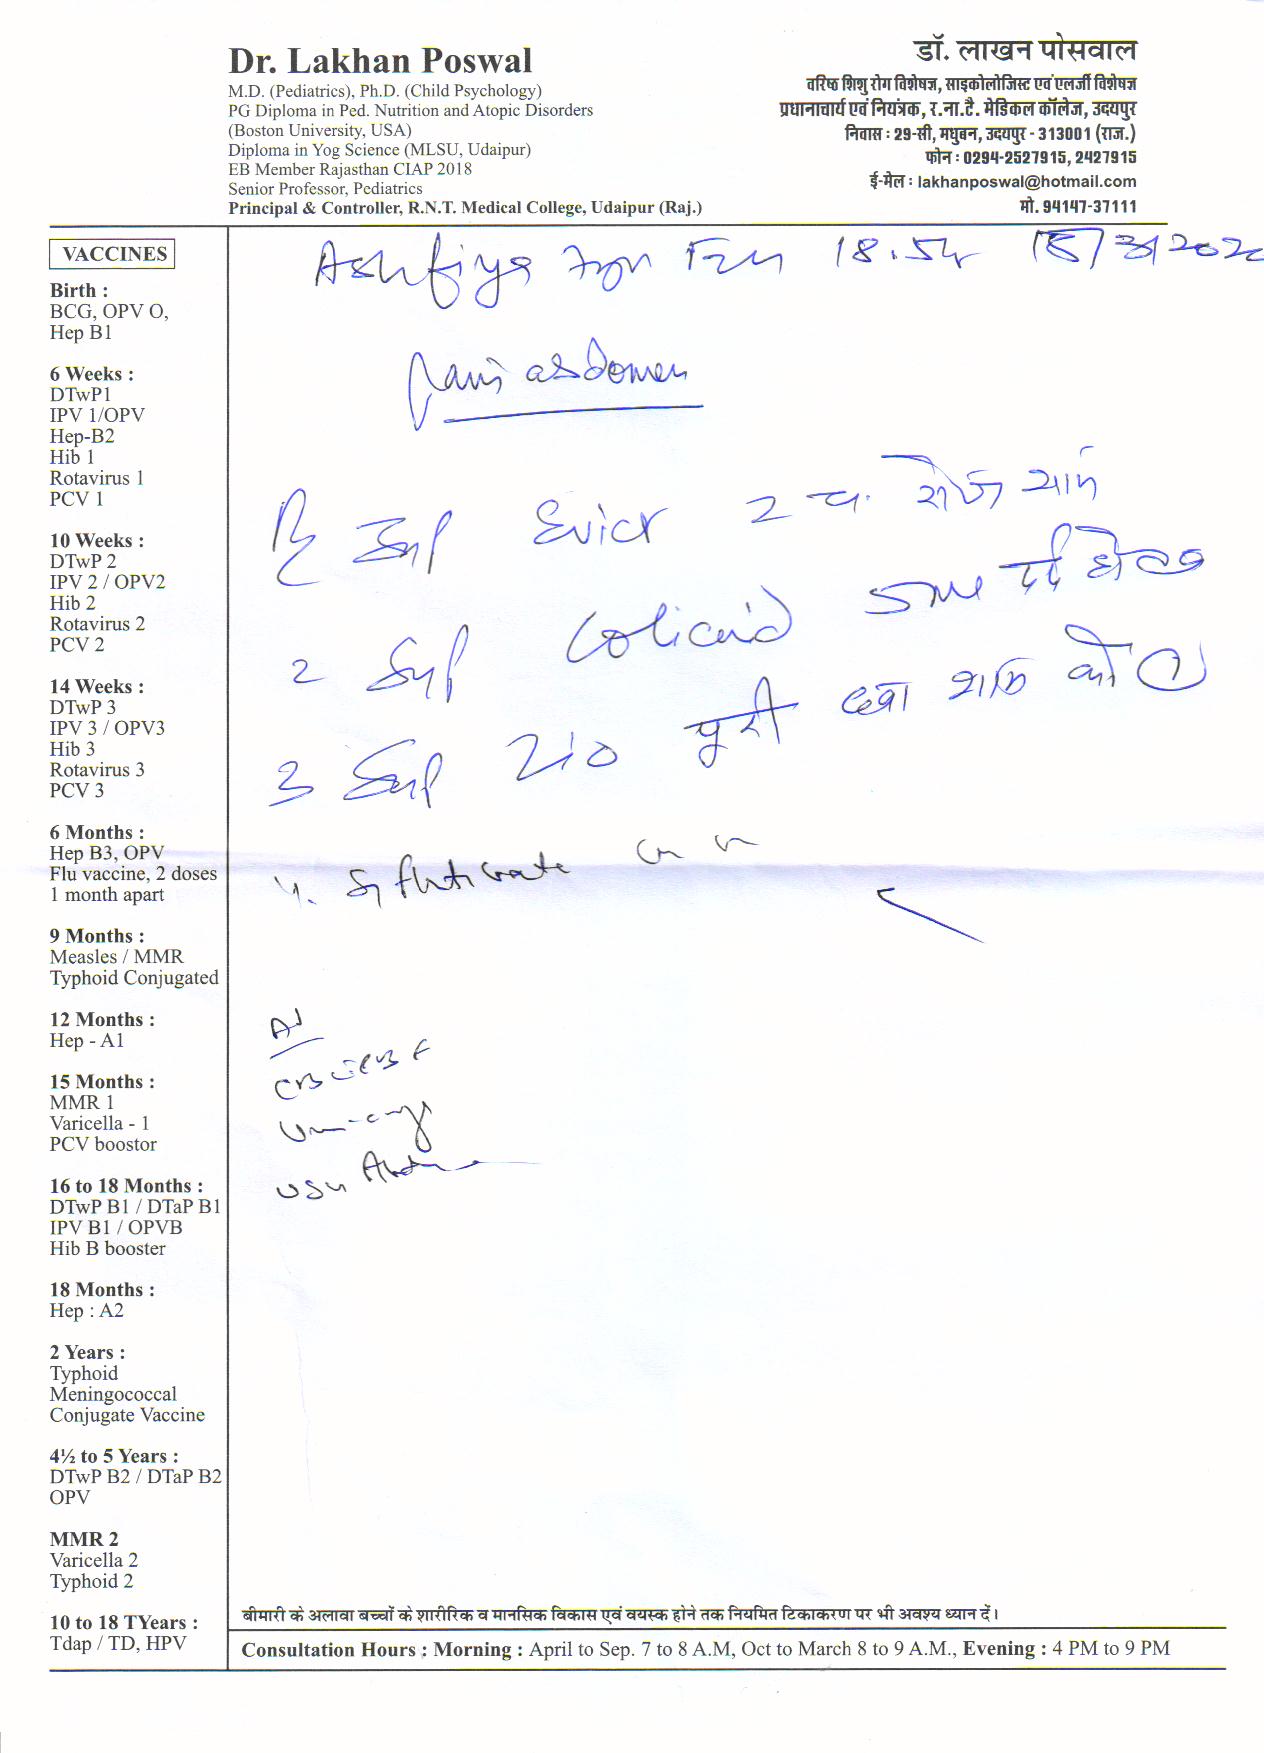 Dr. Lakhan Poswal
M.D. (Pediatrics), Ph.D. (Child Psychology)
PG Diploma in Ped. Nutrition and Atopic Disorders
(Boston University, USA)
Diploma in Yog Science (MLSU, Udaipur)
EB Member Rajasthan CIAP 2018
Senior Professor, Pediatrics
Principal & Controller, R.N.T. Medical College, Udaipur (Raj.)
डॉ. लाखन पोसवाल
वरिष्ठ शिशु रोग विशेषज्ञ, साइकोलोजिस्ट एवं एलर्जी विशेषज्ञ
प्रधानाचार्य एवं नियंत्रक, र.ना.टै. मेडिकल कॉलेज, उदयपुर
निवास : 29-सी, मधुबन, उदयपुर - 313001 (राज.)
फोन : 0294-2527915, 2427915
ई-मेल : lakhanposwal@hotmail.com
मो. 94147-37111
VACCINES
Birth :
BCG, OPV O,
Hep B1
6 Weeks :
DTwP1
IPV 1/OPV
Hep-B2
Hib 1
Rotavirus 1
PCV 1
10 Weeks :
DTwP 2
IPV 2 / OPV2
Hib 2
Rotavirus 2
PCV 2
14 Weeks :
DTwP 3
IPV 3 / OPV3
Hib 3
Rotavirus 3
PCV 3
6 Months :
Hep B3, OPV
Flu vaccine, 2 doses
1 month apart
9 Months :
Measles / MMR
Typhoid Conjugated
12 Months :
Hep - A1
15 Months :
MMR 1
Varicella - 1
PCV boostor
16 to 18 Months :
DTwP B1 / DTaP B1
IPV B1 / OPVB
Hib B booster
18 Months :
Hep : A2
2 Years :
Typhoid
Meningococcal
Conjugate Vaccine
4½ to 5 Years :
DTwP B2 / DTaP B2
OPV
MMR 2
Varicella 2
Typhoid 2
10 to 18 TYears :
Tdap / TD, HPV
Ashfiya 18.5
abdomen
2 च. रोज
2 Colicaid दर्द
3 पूरी दवा को 1
4.
बीमारी के अलावा बच्चों के शारीरिक व मानसिक विकास एवं वयस्क होने तक नियमित टिकाकरण पर भी अवश्य ध्यान दें।
Consultation Hours : Morning : April to Sep. 7 to 8 A.M, Oct to March 8 to 9 A.M., Evening : 4 PM to 9 PM